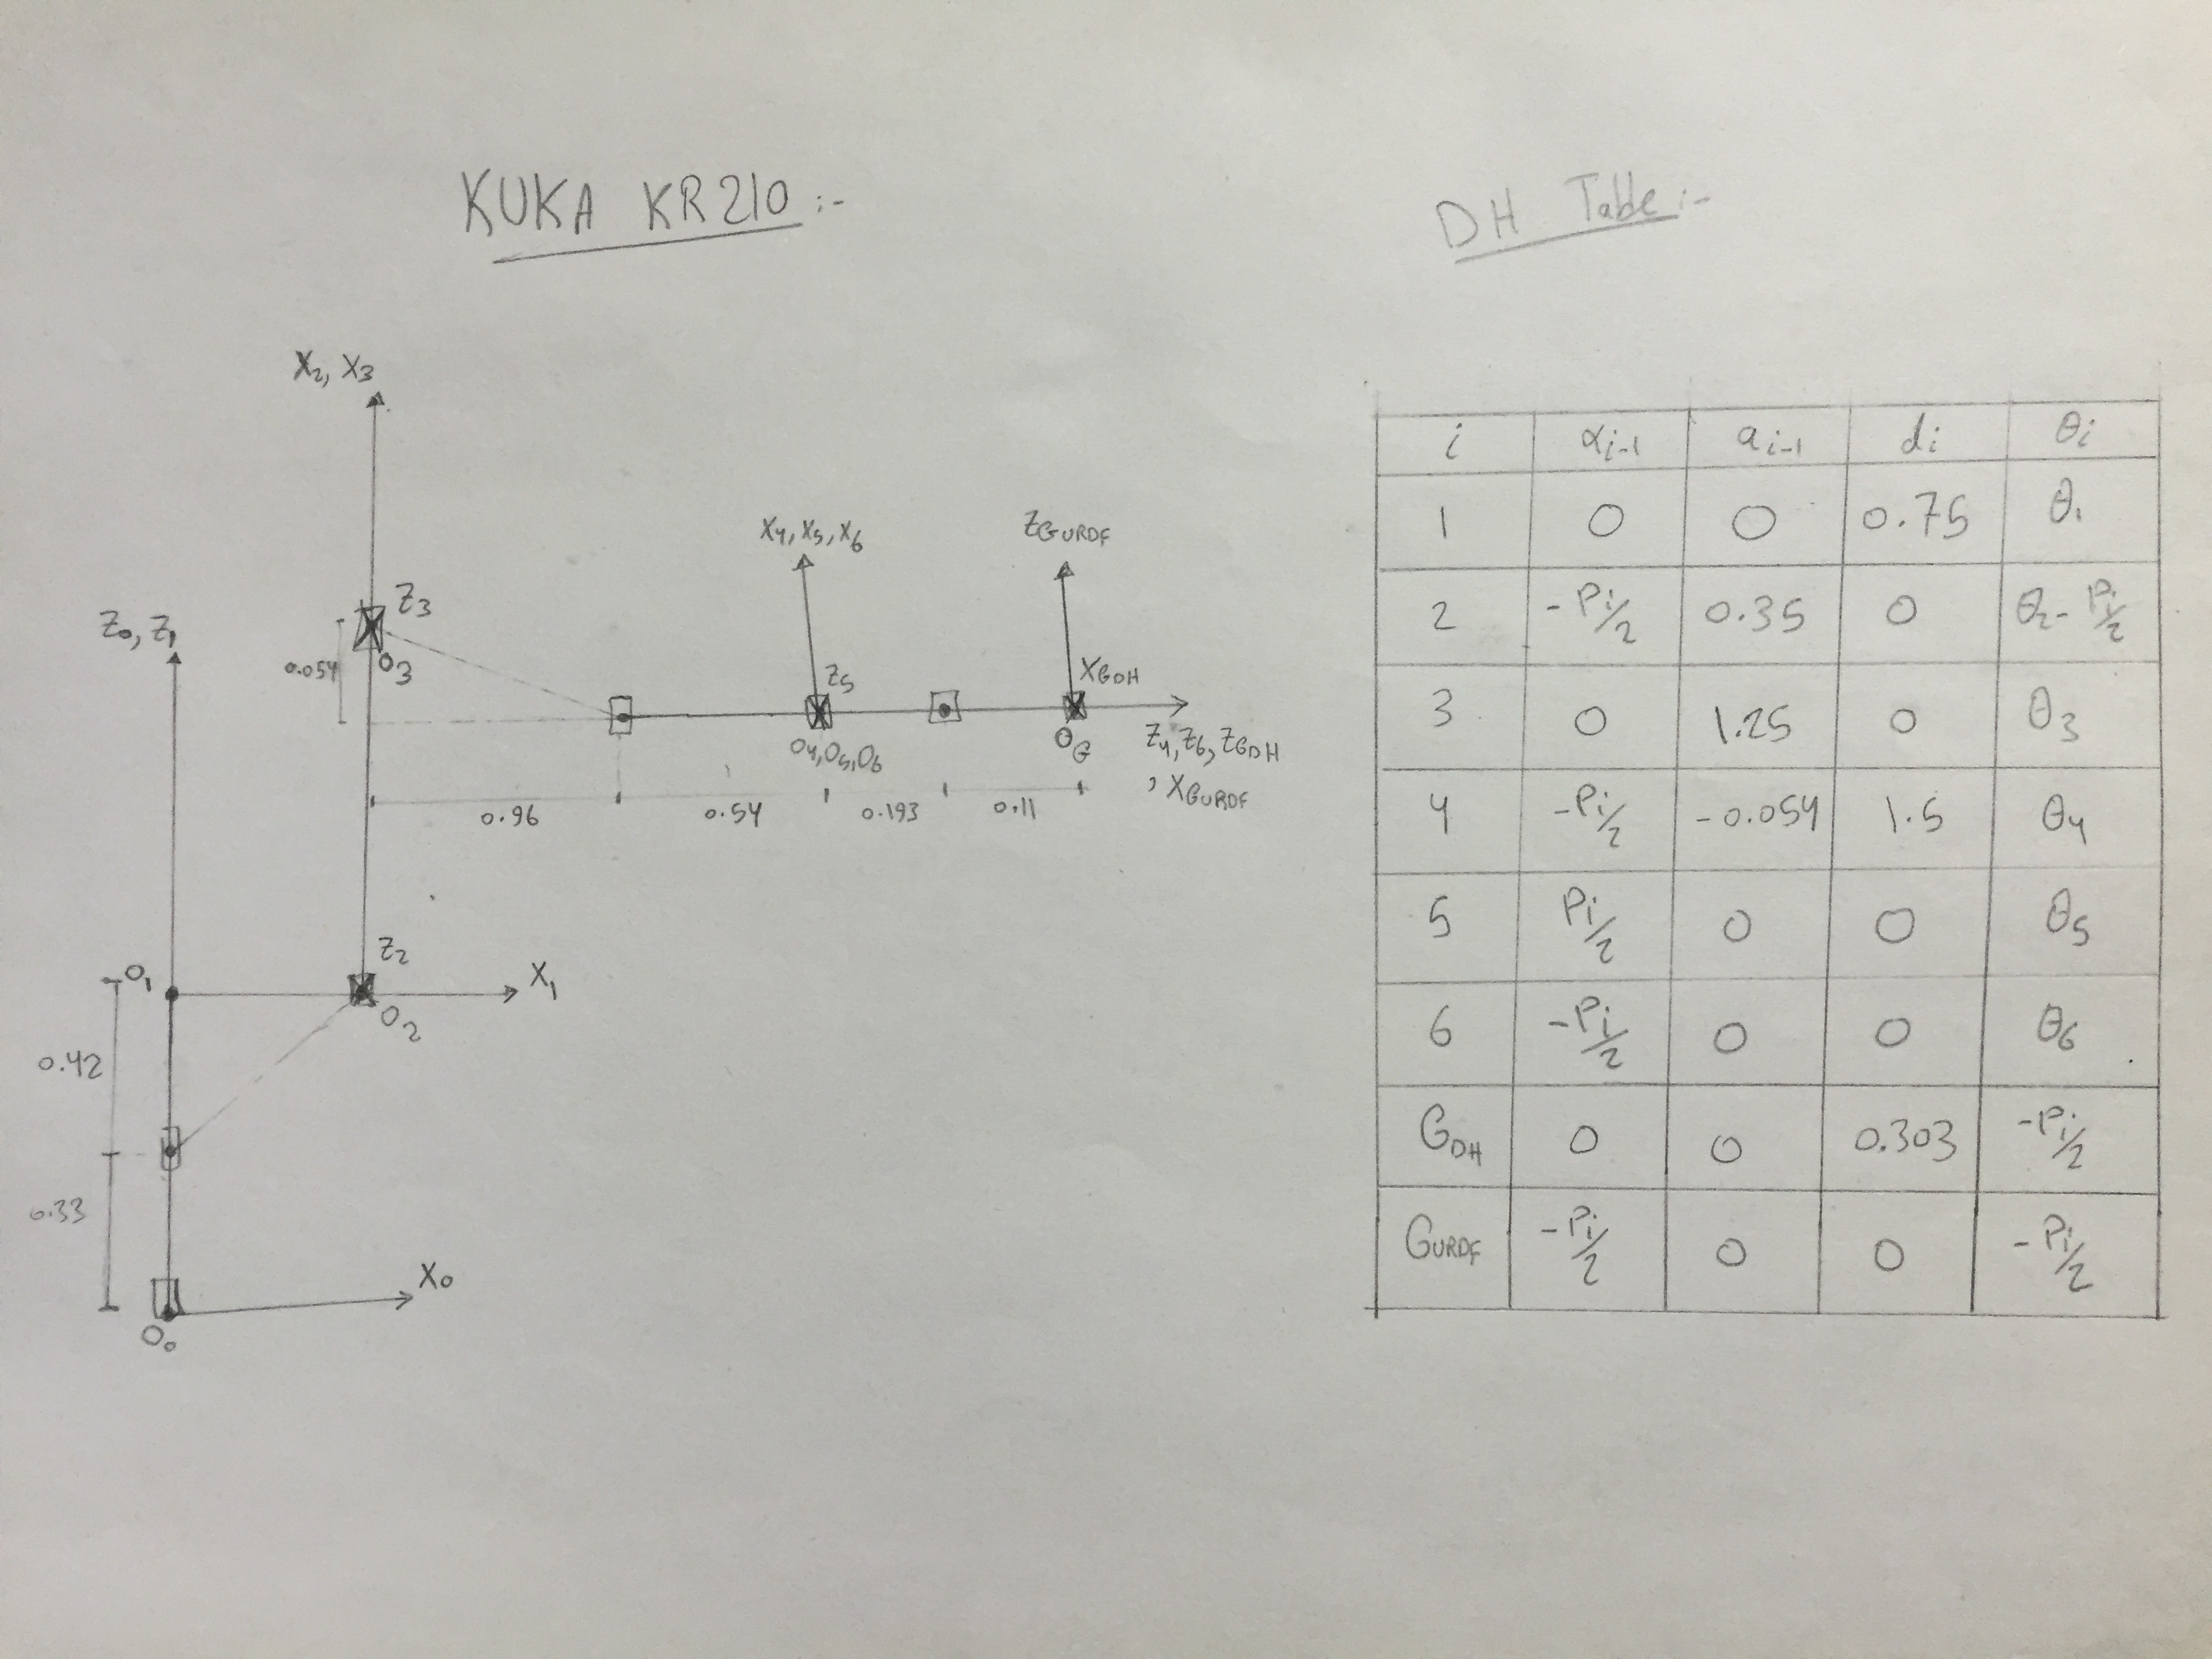 KUKA KR210 :-
DH Table :-
X₂, X₃
Z₃
O₃
0.054
Z₀, Z₁
X₄, X₅, X₆
Z₅
O₄,O₅,O₆
Z_GURDF
X_GDH
O_G
Z₄, Z₆, Z_GDH
, X_GURDF
0.96 0.54 0.193 0.11
Z₂
O₁
X₁
O₂
0.42
0.33
X₀
O₀
i αᵢ₋₁ aᵢ₋₁ dᵢ θᵢ
1 0 0 0.75 θ₁
2 -Pi/2 0.35 0 θ₂-Pi/2
3 0 1.25 0 θ₃
4 -Pi/2 -0.054 1.5 θ₄
5 Pi/2 0 0 θ₅
6 -Pi/2 0 0 θ₆
G_DH 0 0 0.303 -Pi/2
G_URDF -Pi/2 0 0 -Pi/2